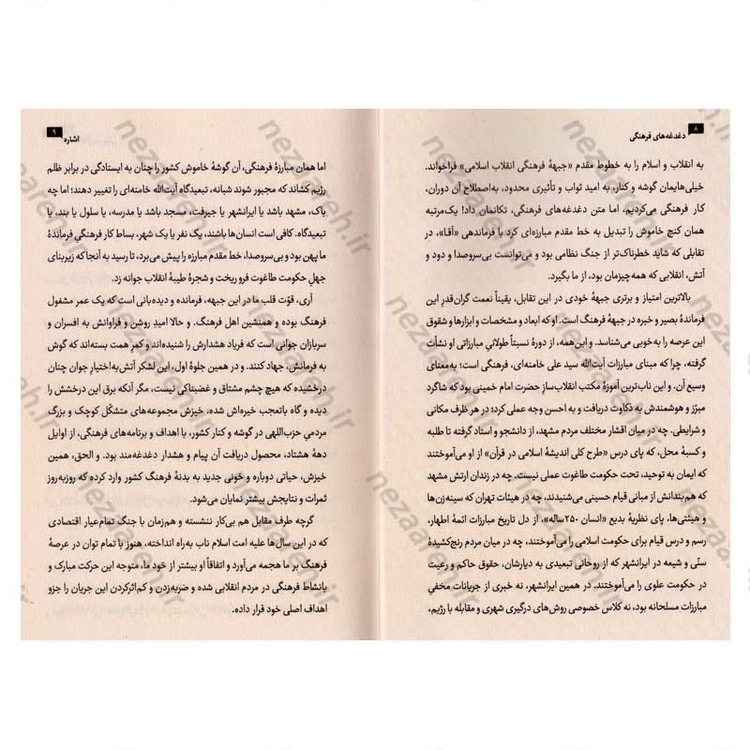 ۸ دغدغه‌های فرهنگی
به انقلاب و اسلام را به خطوط مقدم «جبههٔ فرهنگی انقلاب اسلامی» فراخواند.
خیلی‌هایمان گوشه و کنار، به امید ثواب و تأثیری محدود، به‌اصطلاح آن دوران،
کار فرهنگی می‌کردیم، اما متن دغدغه‌های فرهنگی، تکانمان داد! یک‌مرتبه
همان کنج خاموش را تبدیل به خط مقدم مبارزه‌ای کرد با فرماندهی «آقا»، در
تقابلی که شاید خطرناک‌تر از جنگ نظامی بود و می‌توانست بی‌سروصدا و دود و
آتش، انقلابی که همه‌چیزمان بود، از ما بگیرد.
بالاترین امتیاز و برتری جبههٔ خودی در این تقابل، یقیناً نعمت گران‌قدرِ این
فرماندهٔ بصیر و خبره در جبههٔ فرهنگ است. او که ابعاد و مشخصات و ابزارها و شقوق
این عرصه را به‌خوبی می‌شناسد. و این‌همه، از دورهٔ نسبتاً طولانی مبارزاتی او نشأت
گرفته، چرا که مبنای مبارزات آیت‌الله سید علی خامنه‌ای، فرهنگی است؛ به‌معنای
وسیع آن. و این ناب‌ترین آموزهٔ مکتب انقلاب‌ساز حضرت امام خمینی بود که شاگرد
مبرّز و هوشمندش به ذکاوت دریافت و به احسن وجه عملی کرد؛ در هر ظرف مکانی
و شرایطی. چه در میان اقشار مختلف مردم مشهد، از دانشجو و استاد گرفته تا طلبه
و کسبهٔ محل، که پای درس «طرح کلی اندیشهٔ اسلامی در قرآن» از او می‌آموختند
که ایمان به توحید، تحت حکومت طاغوت عملی نیست، چه در زندان ارتش مشهد
که هم‌بندانش از مبانی قیام حسینی می‌شنیدند، چه در هیئات تهران که سینه‌زن‌ها
و هیئتی‌ها، پای نظریهٔ بدیع «انسان ۲۵۰ساله»، از دل تاریخ مبارزات ائمهٔ اطهار،
رسم و درس قیام برای حکومت اسلامی را می‌آموختند، چه در میان مردم رنج‌کشیدهٔ
سنّی و شیعه در ایرانشهر که از روحانی تبعیدی به دیارشان، حقوق حاکم و رعیت
در حکومت علوی را می‌آموختند. در همین ایرانشهر، نه خبری از جریانات مخفی
مبارزات مسلحانه بود، نه کلاس خصوصی روش‌های درگیری شهری و مقابله با رژیم،
اشاره ۹
اما همان مبارزهٔ فرهنگی، آن گوشهٔ خاموش کشور را چنان به ایستادگی در برابر ظلم
رژیم کشاند که مجبور شوند شبانه، تبعیدگاه آیت‌الله خامنه‌ای را تغییر دهند؛ اما چه
باک، مشهد باشد یا ایرانشهر یا جیرفت، مسجد باشد یا مدرسه، یا سلول یا بند، یا
تبعیدگاه. کافی است انسان‌ها باشند، یک نفر یا یک شهر، بساط کار فرهنگی فرماندهٔ
ما پهن بود و بی‌سروصدا، خط مقدم مبارزه را پیش می‌برد، تا رسید به آنجا که زیربنای
جهلِ حکومت طاغوت فرو ریخت و شجرهٔ طیبهٔ انقلاب جوانه زد.
آری، قوّت قلب ما در این جبهه، فرمانده و دیده‌بانی است که یک عمر مشغول
فرهنگ بوده و همنشین اهل فرهنگ. و حالا امید روشن و فراوانش به افسران و
سربازان جوانی است که فریاد هشدارش را شنیده‌اند و کمر همت بسته‌اند که گوش
به فرمانش، جهاد کنند. و در همین جلوهٔ اول، این لشکر آتش‌به‌اختیارِ جوان چنان
درخشیده که هیچ چشم مشتاق و غضبناکی نیست، مگر آنکه برق این درخشش را
دیده و گاه باتعجب خیره‌اش شده، خیزش مجموعه‌های متشکّل کوچک و بزرگ
مردمیِ حزب‌اللهی در گوشه و کنار کشور، با اهداف و برنامه‌های فرهنگی، از اوایل
دههٔ هشتاد، محصول دریافت آن پیام و هشدار دغدغه‌مند بود. و الحق، همین
خیزش، حیاتی دوباره و خونی جدید به بدنهٔ فرهنگ کشور وارد کرده که روزبه‌روز
ثمرات و نتایجش بیشتر نمایان می‌شود.
گرچه طرف مقابل هم بی‌کار ننشسته و هم‌زمان با جنگ تمام‌عیار اقتصادی
که در این سال‌ها علیه امت اسلام ناب به‌راه انداخته، هنوز با تمام توان در عرصهٔ
فرهنگ بر ما هجمه می‌آورد و اتفاقاً او بیشتر از خود ما، متوجه این حرکت مبارک و
بانشاط فرهنگی در مردم انقلابی شده و ضربه‌زدن و کم‌اثرکردن این جریان را جزو
اهداف اصلی خود قرار داده.
nezaareh.ir